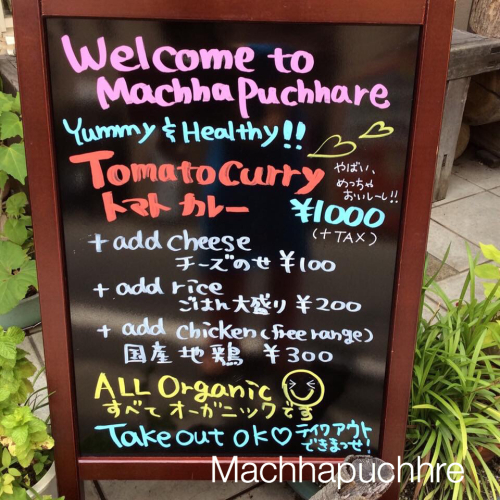 Welcome to
Machhapuchhare
Yummy & Healthy!!
Tomato Curry
トマト カレー
やばい、
めっちゃ
おいしーし!!
¥1000
(+TAX)
+ add cheese
チーズのせ ¥100
+ add rice
ごはん大盛り ¥200
+ add chicken (free range)
国産地鶏 ¥300
ALL Organic
すべて オーガニックです
Take out OK♡
テイクアウト
できまっせ!
Machhapuchhre